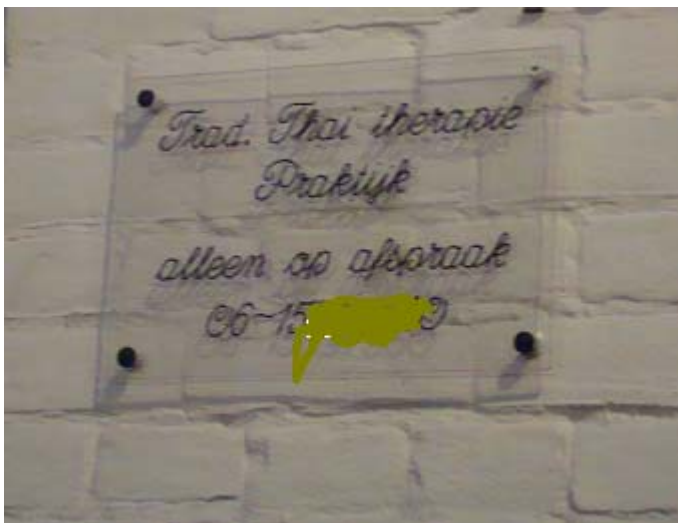 Trad. Thai therapie
Praktijk
alleen op afspraak
06-15